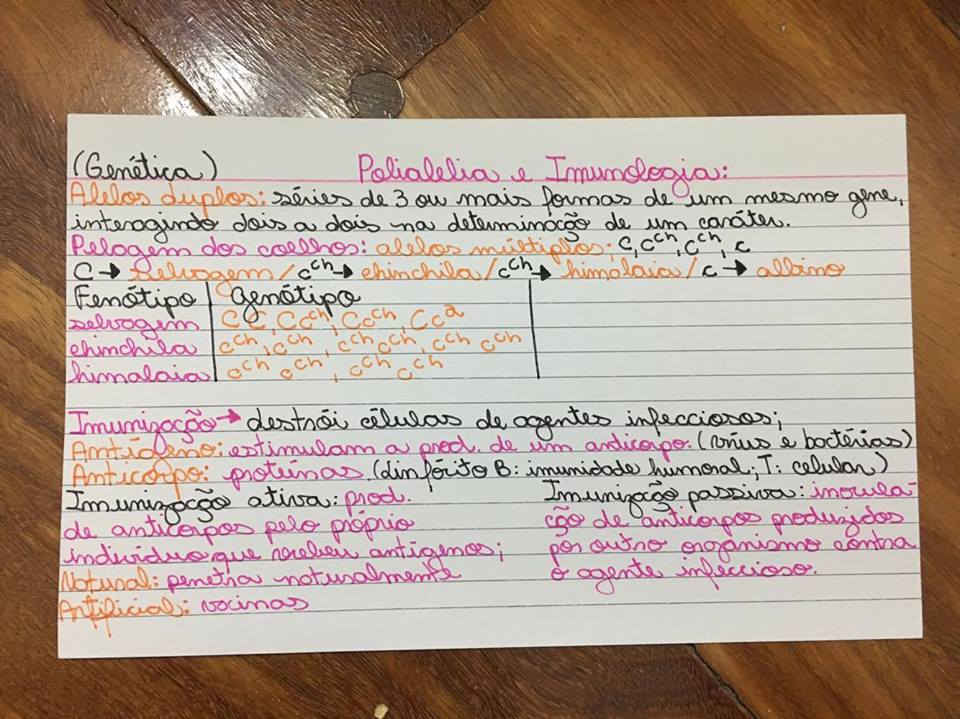 (Genética) Polialelia e Imunologia:
Alelos duplos: séries de 3 ou mais formas de um mesmo gene,
interagindo dois a dois na determinação de um caráter.
Pelagem dos coelhos: alelos múltiplos: C, Cch, Cch, c
C → selvagem / cch → chinchila / cch → himalaia / c → albino
Fenótipo | Genótipo
selvagem CC, Ccch, Ccch, Cca
chinchila cch, cch, cch cch, cch cch
himalaia cch cch, cch cch
Imunização → destrói células de agentes infecciosos;
Antígeno: estimulam a prod. de um anticorpo. (vírus e bactérias)
Anticorpo: proteínas. (linfócito B: imunidade humoral; T: celular)
Imunização ativa: prod.
de anticorpos pelo próprio
indivíduo que recebeu antígenos;
Natural: penetra naturalmente
Artificial: vacinas
Imunização passiva: inocula-
ção de anticorpos produzidos
por outro organismo contra
o agente infeccioso.